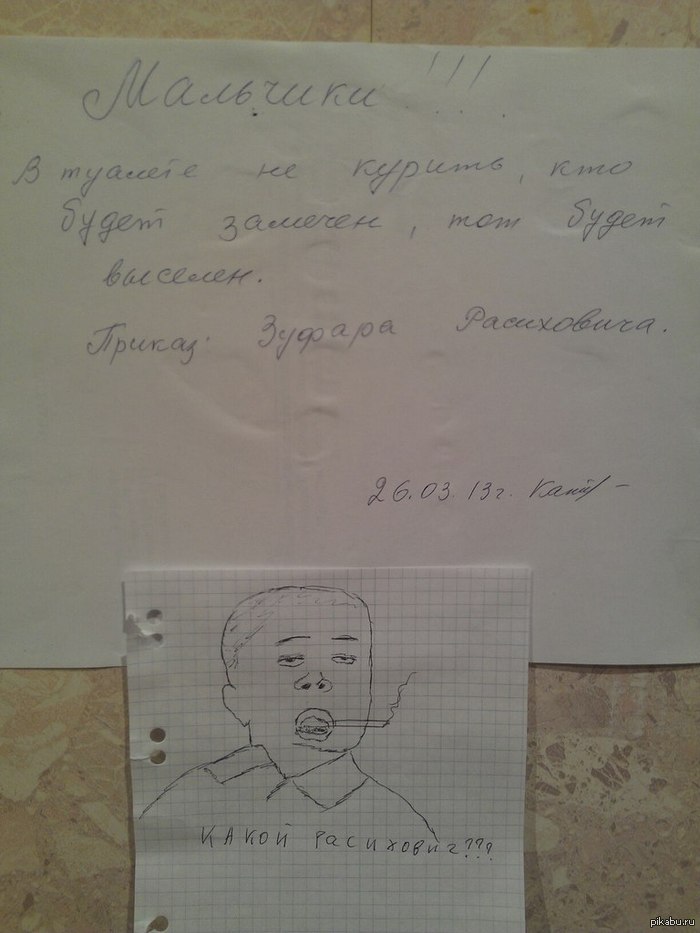 Мальчики!!!
В туалете не курить, кто
будет замечен, тот будет
выселен.
Приказ Зуфара Расиховича.
26.03.13г.
КАКОЙ Расихович???
pikabu.ru